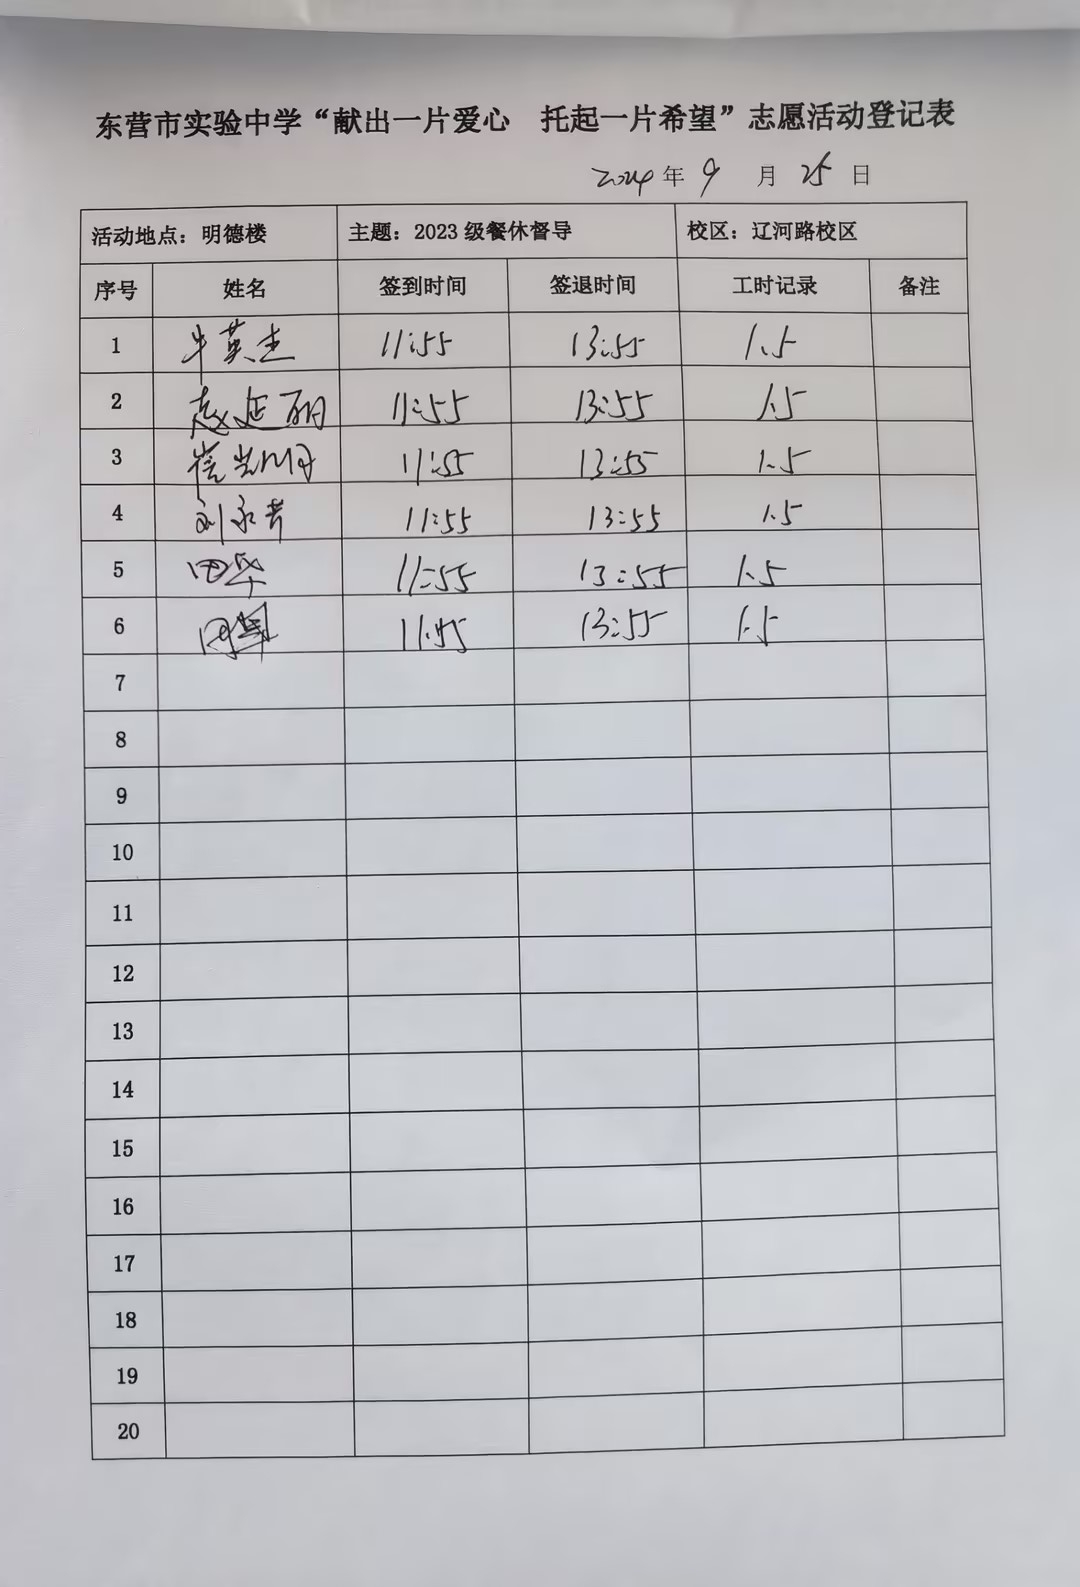 东营市实验中学“献出一片爱心 托起一片希望”志愿活动登记表
2024年9月25日
活动地点：明德楼 主题：2023级餐休督导 校区：辽河路校区
序号 姓名 签到时间 签退时间 工时记录 备注
1 牛英杰 11:55 13:55 1.5
2 赵延丽 11:55 13:55 1.5
3 崔 11:55 13:55 1.5
4 刘永芳 11:55 13:55 1.5
5 田华 11:55 13:55 1.5
6 11:55 13:55 1.5
7
8
9
10
11
12
13
14
15
16
17
18
19
20